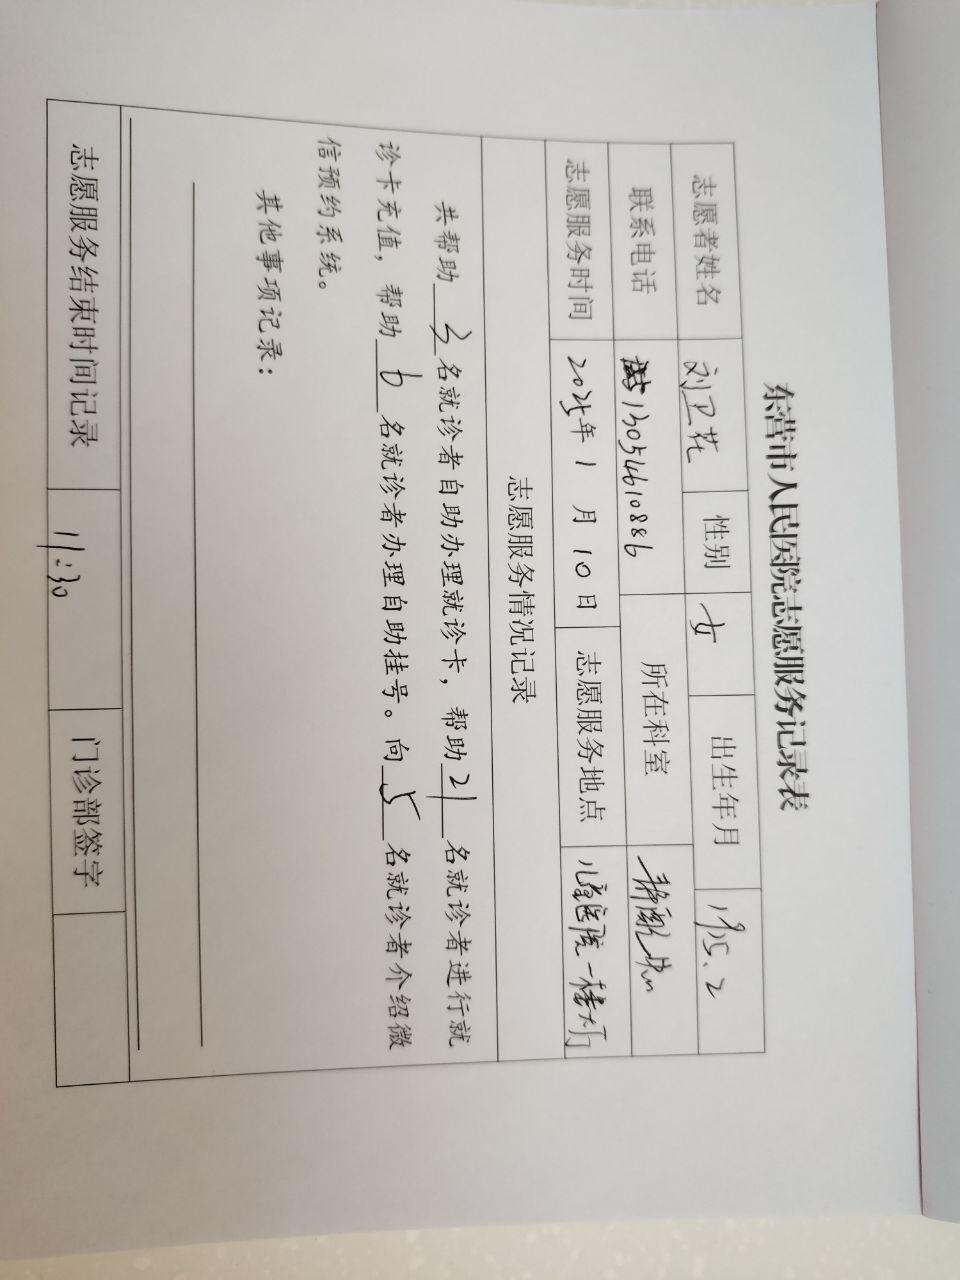 东营市人民医院志愿服务记录表
志愿者姓名 刘卫花 性别 女 出生年月
联系电话 13054610886 所在科室
志愿服务时间 2025年 1 月 10 日 志愿服务地点 儿童医院一楼大厅
志愿服务情况记录
共帮助 3 名就诊者自助办理就诊卡，帮助 21 名就诊者进行就
诊卡充值，帮助 6 名就诊者办理自助挂号。向 5 名就诊者介绍微
信预约系统。
其他事项记录：
志愿服务结束时间记录 11:30 门诊部签字